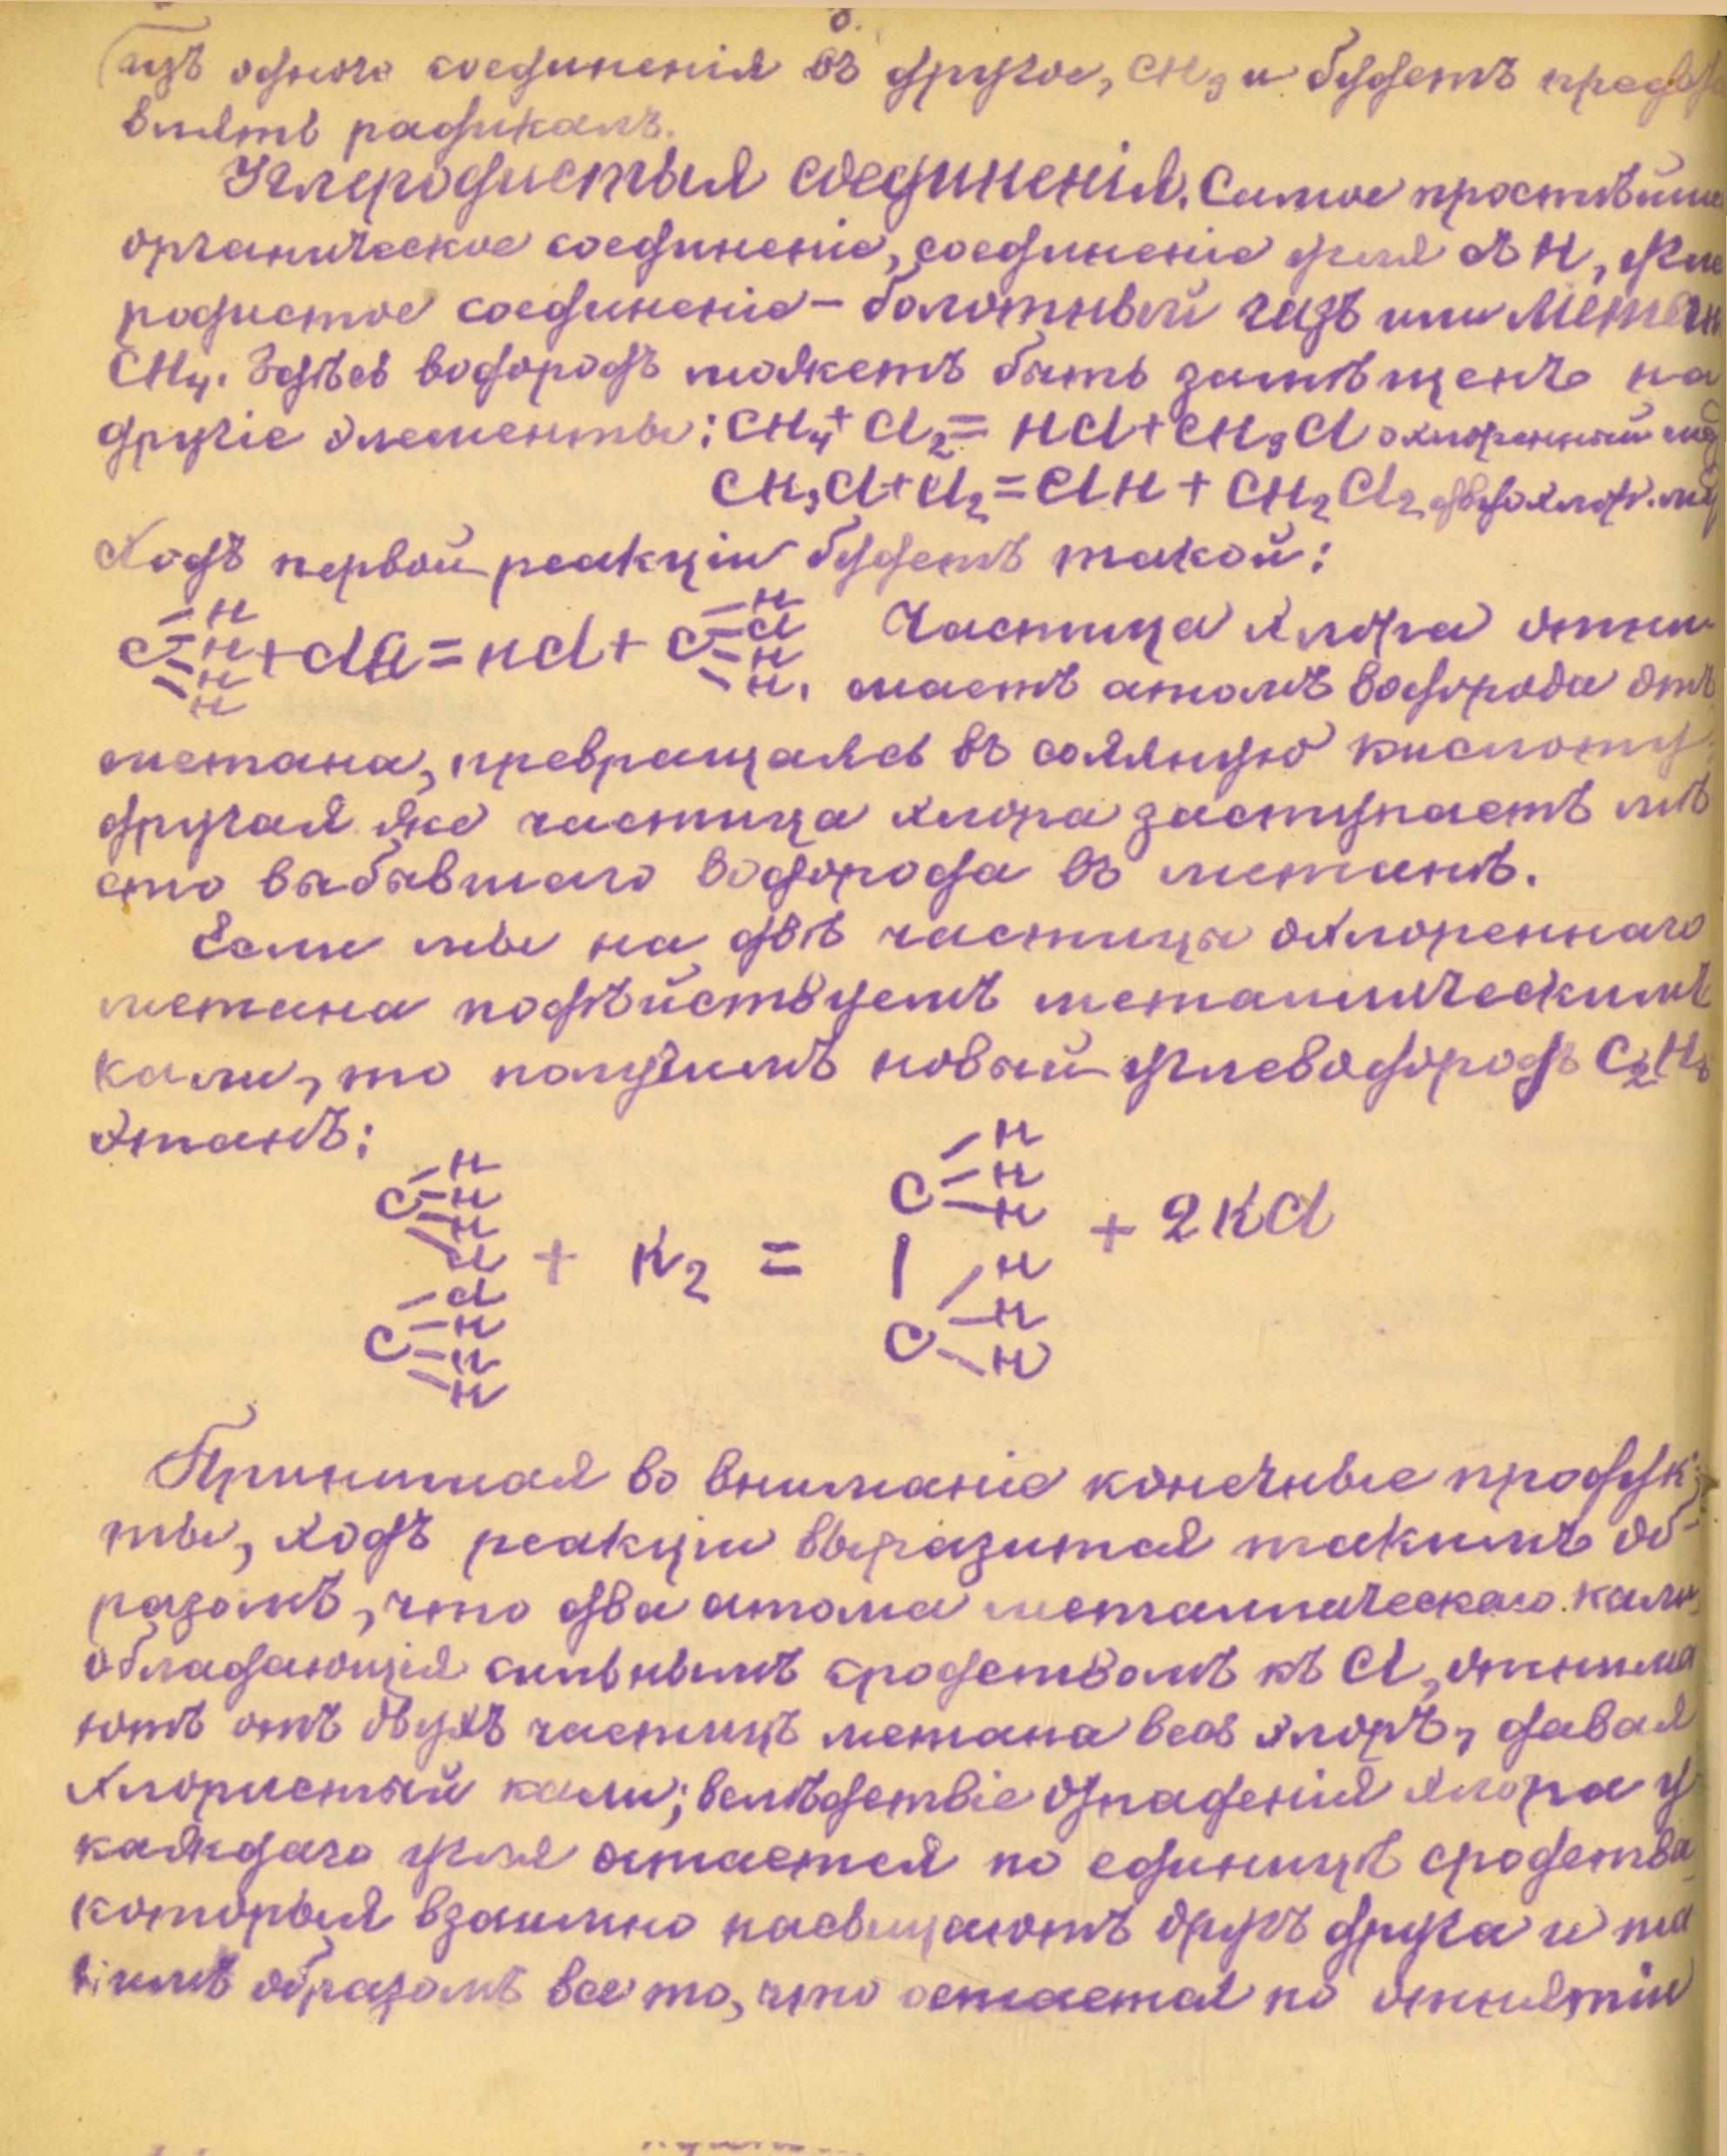 8.
изъ одного соединенія въ другое, CH3 и будетъ предста
влять радикалъ.
Углеродистыя соединенія. Самое простѣйшее
органическое соединеніе, соединеніе угля съ H, угле
родистое соединеніе – болотный газъ или Метанъ
CH4. Здѣсь водородъ можетъ быть замѣщенъ на
другіе элементы: CH4 + Cl2 = HCl + CH3Cl охлоренный мет
CH3Cl + Cl2 = ClH + CH2Cl2 двухлор. мет
Ходъ первой реакціи будетъ такой:
C H H H H + ClCl = HCl + C H Cl H H. Частица хлора отни-
маетъ атомъ водорода отъ
метана, превращаясь въ соляную кислоту
другая же частица хлора заступаетъ мѣ
сто выбывшаго водорода въ метанѣ.
Если мы на двѣ частицы охлореннаго
метана подѣйствуемъ металлическимъ
кали, то получимъ новый углеводородъ C2H6
этанъ:
C H H H Cl Cl C H H H + K2 = C H H H | C H H H + 2KCl
Принимая во вниманіе конечные продук-
ты, ходъ реакціи выразится такимъ об-
разомъ, что два атома металлическаго кали,
обладающія сильнымъ сродствомъ къ Cl, отнима
ютъ отъ двухъ частицъ метана весь хлоръ, давая
хлористый кали; вслѣдствіе отпаденія хлора у
каждаго угля остается по единицѣ сродства
которыя взаимно насыщаютъ другъ друга и та
кимъ образомъ все то, что остается по отнятіи